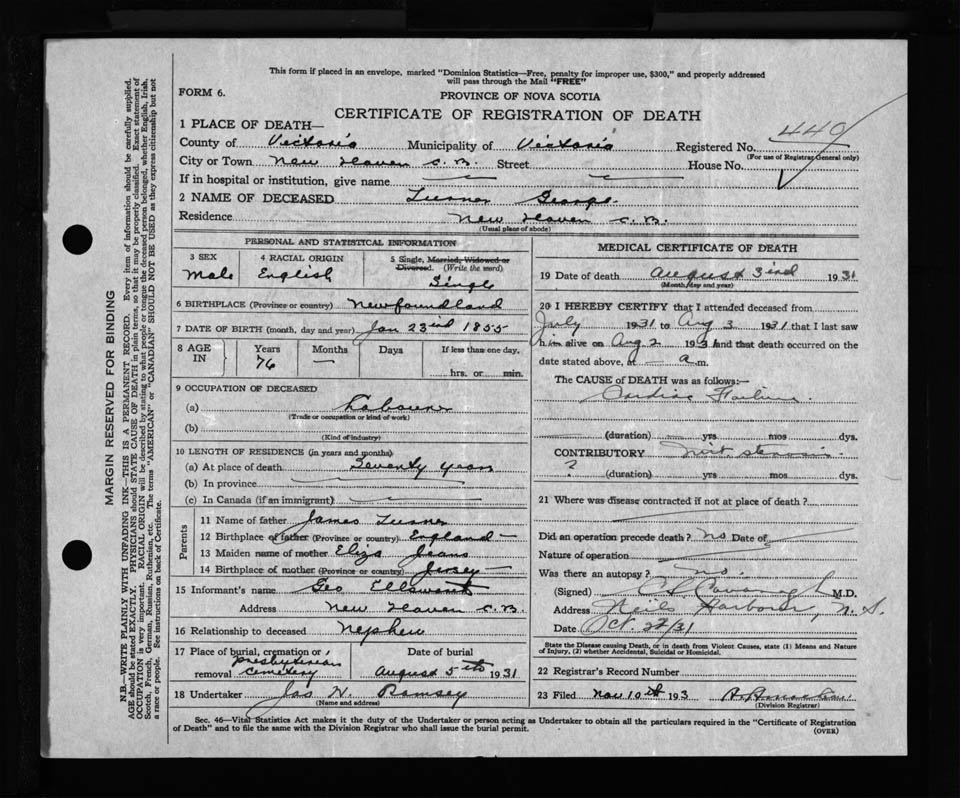 This form if placed in an envelope, marked "Dominion Statistics—Free, penalty for improper use, $300," and properly addressed
will pass through the Mail "FREE"
FORM 6.
PROVINCE OF NOVA SCOTIA
CERTIFICATE OF REGISTRATION OF DEATH
1 PLACE OF DEATH—
County of Victoria Municipality of Victoria Registered No. 440
(For use of Registrar General only)
City or Town New Haven C.B. Street House No.
If in hospital or institution, give name
2 NAME OF DECEASED Turner George
Residence New Haven C.B.
(Usual place of abode)
PERSONAL AND STATISTICAL INFORMATION
3 SEX Male
4 RACIAL ORIGIN English
5 Single, Married, Widowed or
Divorced. (Write the word)
Single
6 BIRTHPLACE (Province or country) Newfoundland
7 DATE OF BIRTH (month, day and year) Jan 23ird 1855
8 AGE IN Years 76 Months — Days If less than one day, hrs. or min.
9 OCCUPATION OF DECEASED
(a) Labourer
(Trade or occupation or kind of work)
(b)
(Kind of industry)
10 LENGTH OF RESIDENCE (in years and months)
(a) At place of death Seventy years
(b) In province
(c) In Canada (if an immigrant)
Parents
11 Name of father James Turner
12 Birthplace of father (Province or country) England
13 Maiden name of mother Eliza Jeans
14 Birthplace of mother (Province or country) Jersey
15 Informant's name Geo
Address New Haven C.B.
16 Relationship to deceased Nephew
17 Place of burial, cremation or
removal Presbyterian
cemetery
Date of burial
August 5th 1931
18 Undertaker Jas N. Ramsey
(Name and address)
MEDICAL CERTIFICATE OF DEATH
19 Date of death August 3ird 1931
(Month, day and year)
20 I HEREBY CERTIFY that I attended deceased from
July 1931 to Aug 3 1931 that I last saw
him alive on Aug 2 1931 and that death occurred on the
date stated above, at — a.m.
The CAUSE of DEATH was as follows:—
Cardiac Failure
(duration) yrs mos dys.
CONTRIBUTORY Mit. stenosis
? (duration) yrs mos dys.
21 Where was disease contracted if not at place of death?
Did an operation precede death? No Date of
Nature of operation
Was there an autopsy? no.
(Signed) Cavanagh M.D.
Address Neils Harbour, N.S.
Date Oct. 22/31
State the Disease causing Death, or in death from Violent Causes, state (1) Means and Nature
of Injury, (2) whether Accidental, Suicidal or Homicidal.
22 Registrar's Record Number
23 Filed Nov 10th 193
(Division Registrar)
Sec. 46—Vital Statistics Act makes it the duty of the Undertaker or person acting as Undertaker to obtain all the particulars required in the "Certificate of Registration
of Death" and to file the same with the Division Registrar who shall issue the burial permit.
(OVER)
MARGIN RESERVED FOR BINDING
N.B.—WRITE PLAINLY WITH UNFADING INK—THIS IS A PERMANENT RECORD. Every item of information should be carefully supplied.
AGE should be stated EXACTLY. PHYSICIANS should STATE CAUSE OF DEATH in plain terms, so that it may be properly classified. Exact statement of
OCCUPATION is very important. RACIAL ORIGIN will be described by stating to what people or tongue the deceased person belonged, whether English, Irish,
Scotch, French, German, Russian, Ruthenian, etc. The terms "AMERICAN" or "CANADIAN" SHOULD NOT BE USED as they express citizenship but not
a race or people. See instructions on back of Certificate.